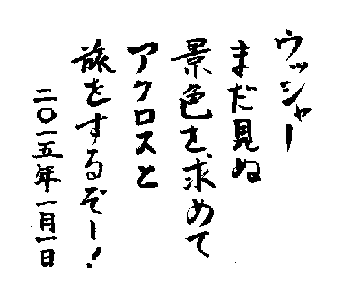 ウッシャー
まだ見ぬ
景色を求めて
アクロスと
旅をするぞー!
二〇一五年一月一日